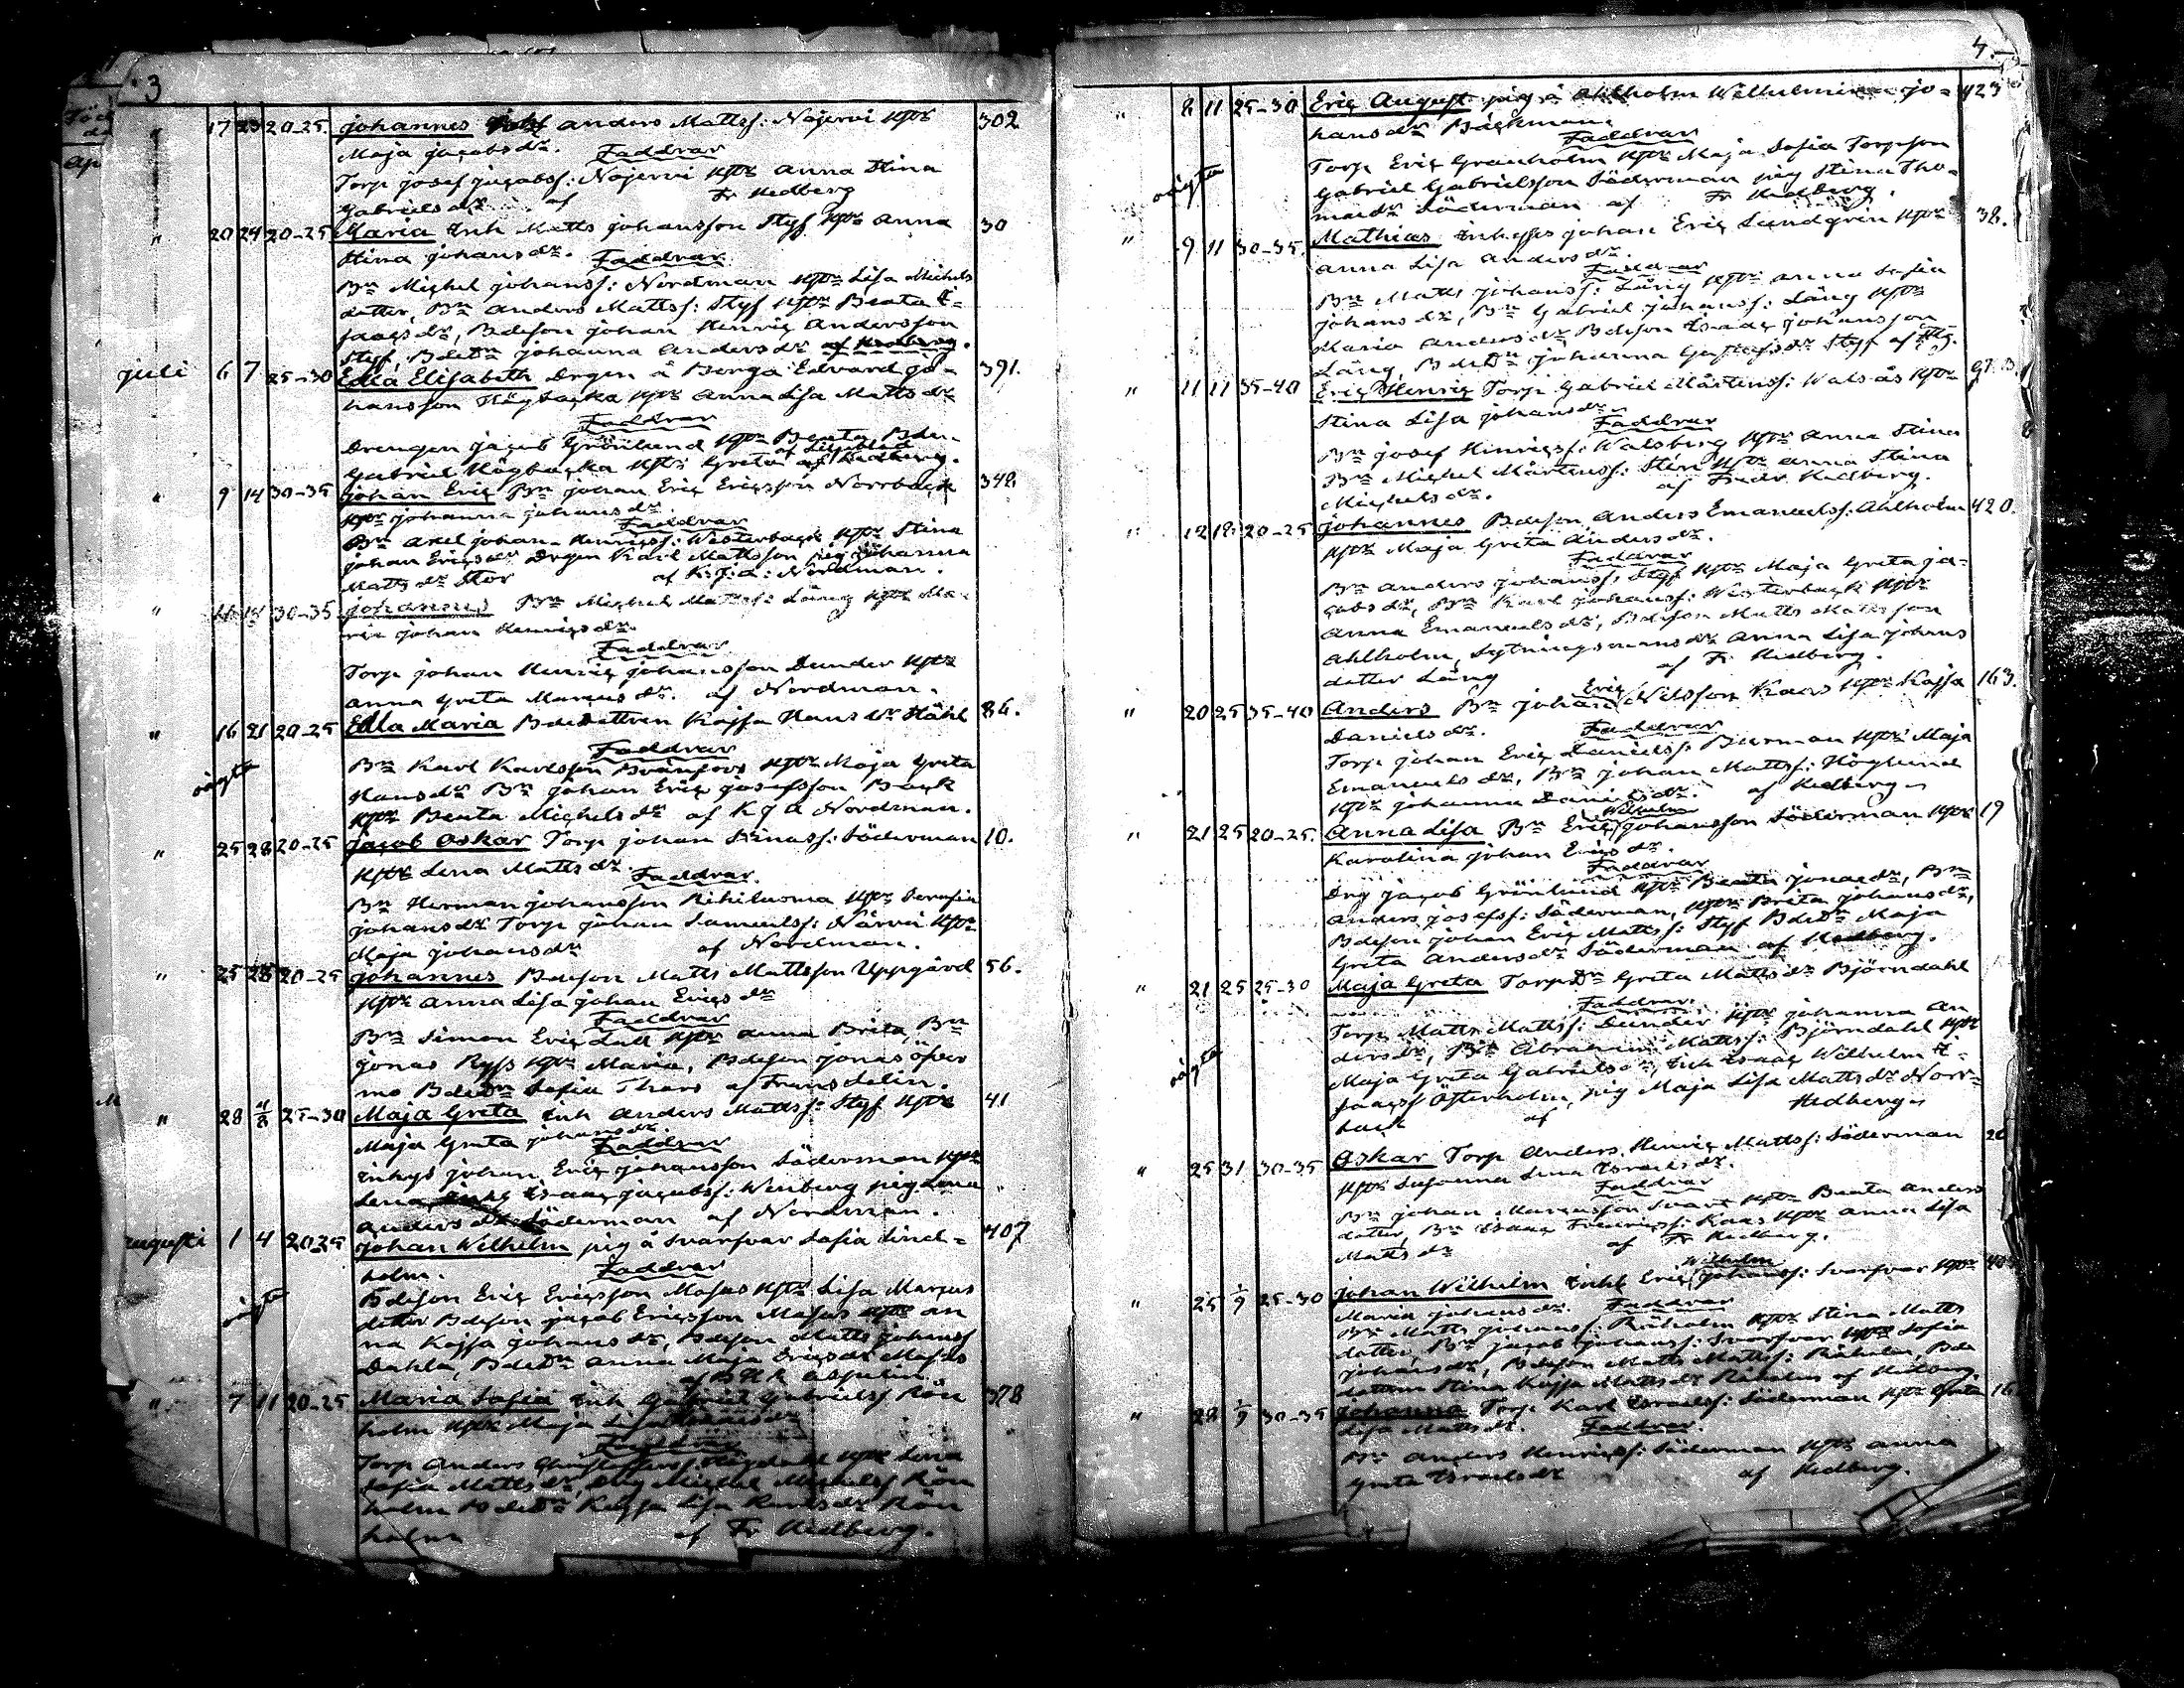 3
Född
Ap
" 17 23 20-25. Johannes Anders Mattsf: Nojervi Hstr 302
Maja Jacobs dr. Faddrar
Torp Josef Jacobsf: Nojervi Hstr Anna Stina
Gabriels dr af Fr Hedberg
" 20 24 20-25 Maria Inh Matts Johansson Styf Hstr Anna 30
Stina Johans dr. Faddrar
Bn Michel Johansf: Nordman Hstr Lisa Michels
dotter, Bn Anders Mattsf: Styf Hstr Beata I-
saacs dr, Bdeson Johan Henric Andersson
Styf, Bdedn Johanna Anders dr af Hedberg.
Juli 6 7 25-30 Edla Elisabeth Drgen å Berga Edvard Jo- 391.
hansson Högbacka Hstr Anna Lisa Matts dr
Faddrar
Drengen Jacob Grönlund Hstr Beata Bden
Gabriel Högbacka Hstr Greta af Hedberg.
" 9 14 30-35 Johan Eric Bn Johan Eric Ericsson Norrback 348
Hstr Johanna Johans dr.
Faddrar
Bn Axel Johan-Henricsf: Westerback Hstr Stina
Johan Erics dr Drgen Karl Mattsson pig Johanna
Matts dr Stor af K.J.A: Nordman.
" 14 30-35 Johannes Bn Michel Mattsf: Lång Hstr Ma-
ria Johan Henrics dr.
Faddrar
Torp Johan Henric Johansson Dunder Hstr
Anna Greta Marcus dr. af Nordman.
" 16 21 20-25 Edla Maria Bdedottren Kajsa Hans dr Ståhl 86.
oägta
Faddrar
Bn Karl Karlsson Svanfors Hstr Maja Greta
Hans dr Bn Johan Eric Josefsson Back
Hstr Beata Michels dr af K J A Nordman.
" 25 28 20-25 Jacob Oskar Torp Johan Jonasf: Söderman 10.
Hstr Lena Matts dr Faddrar.
Bn Herman Johansson Rihiluoma Hstr Serafia
Johans dr Torp Johan Samuelsf: Närvi Hstr
Maja Johans dr af Nordman.
" 25 28 20-25 Johannes Bdeson Matts Mattsson Uppgård 56.
Hstr Anna Lisa Johan Erics dr
Faddrar
Bn Simon Eric Lall Hstr Anna Brita, Bn
Jonas Ryss Hstr Maria, Bdeson Jonas Öfver
mo Bdedn Sofia Thors af Frans Delin.
" 28 4/8 25-30 Maja Greta Inh Anders Mattsf: Styf Hstr 41
Maja Greta Johans dr.
Faddrar
Inhys Johan Eric Johansson Söderman Hstr
Lena, Isaac Jacobsf: Wenberg pig Lena
Anders dr Söderman af Nordman.
Augusti 1 4 20.25 Johan Wilhelm pig å Svarfvar Sofia Lind- 407
holm. Faddrar
oägta
Bdeson Eric Ericsson Masus Hstr Lisa Marcus
dotter Bdeson Jacob Ericsson Masus Hstr An
na Kajsa Johans dr, Bdeson Matts Johansf
Dahla, Bdedn Anna Maja Erics dr Masus
af B H R Asplin.
" 7 11 20-25 Maria Sofia Inh Gabriel Gabrielsf Rön 378
holm Hstr Maja Lisa
Faddrar
Torp Anders Högdahl Hstr Lena
Sofia Matts dr, Drg Michel Michelsf Rön
holm Bdedn Kajsa Lisa Karls dr Rön
holm af Fr Hedberg.
4.
" 8 11 25-30 Eric August pig å Ahlholm Wilhelmina Jo- 423
hans dr Bäckman.
oägta
Faddrar
Torp Eric Granholm Hstr Maja Sofia Torpson
Gabriel Gabrielsson Söderman pig Stina Tho-
mas dr Söderman af Fr Hedberg.
" 9 11 30-35. Mathias Inhyses Johan Eric Lundqvin Hstr 38.
Anna Lisa Anders dr.
Faddrar
Bn Matts Johansf: Lång Hstr Anna Sofia
Johans dr, Bn Gabriel Johansf: Lång Hstr
Maria Anders dr Bdeson Isaac Johansson
Lång, Bdedn Johanna Gustafs dr Styf af Hbg.
" 11 11 35-40 Eric Henric Torp Gabriel Mårtensf: Walsås Hstr 97.B.
Stina Lisa Johans dr.
Faddrar
Bn Josef Henricsf: Walsberg Hstr Anna Stina
Bn Michel Mårtensf: Stén Hstr Anna Stina
Michels dr. af Fredr Hedberg.
" 12 18 20-25 Johannes Bdeson Anders Emanuelsf: Ahlholm 420.
Hstr Maja Greta Anders dr.
Faddrar
Bn Anders Johansf: Styf Hstr Maja Greta Ja-
cobs dr, Bn Karl Johansf: Westerback Hstr
Anna Emanuels dr, Bdeson Matts Mattsson
Ahlholm, Sytningsmans dr Anna Lisa Johans
dotter Lång af Fr Hedberg.
" 20 25 35-40 Anders Bn Johan Eric Nilsson Kaars Hstr Kajsa 163.
Daniels dr. Faddrar
Torp Johan Eric Danielsf: Burman Hstr Maja
Emanuels dr, Bn Johan Mattsf: Höglund
Hstr Johanna Daniels dr. af Hedberg
" 21 25 20-25. Anna Lisa Bn Eric Wilhelm Johansson Söderman Hstr 19
Karolina Johan Erics dr.
Faddrar
Drg Jacob Grönlund Hstr Beata Jonas dr, Bn
Anders Josefsf: Söderman, Hstr Brita Johans dr,
Bdeson Johan Eric Mattsf: Styf Bdedn Maja
Greta Anders dr Söderman af Hedberg.
" 21 25 25-30 Maja Greta Torpdn Greta Matts dr Björndahl
oägta
Faddrar.
Torp Matts Mattsf: Dunder Hstr Johanna An
ders dr, Bn Abraham Mattsf: Björndahl Hstr
Maja Greta Gabriels dr, Inh Isaac Wilhelm I-
saacsf Österholm, pig Maja Lisa Matts dr Norr-
back af Hedberg
" 25 31 30-35 Oskar Torp Anders Henric Mattsf: Söderman 20
Hstr Susanna Lena Israels dr.
Faddrar
Bn Johan Marcusson Svart Hstr Beata Anders
dotter, Bn Isaac Fredricsf: Kaas Hstr Anna Lisa
Matts dr af Fr Hedberg.
" 25 1/9 25-30 Johan Wilhelm Inh Eric Wilhelm Johansf: Svarfvar Hstr
Maria Johans dr. Faddrar
Bn Matts Johansf: Råholm Hstr Stina Matts
dotter, Bn Jacob Johansf: Svarfvar Hstr Sofia
Johans dr, Bdeson Matts Mattsf: Råholm, Bde
dottren Stina Kajsa Matts dr Råholm af Hedberg
" 28 1/9 30-35 Johanna Torp Karl Israelsf: Söderman Hstr Greta 16
Lisa Matts dr. Faddrar.
Bn Anders Henricsf: Söderman Hstr Anna
Greta Israels dr af Hedberg.